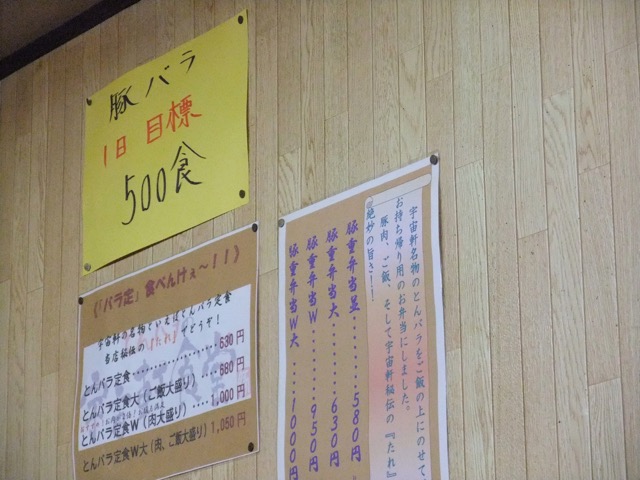 豚バラ
1日 目標
500食
(「バラ定」食べんけぇ～!!)
宇宙軒の名物といえばとんバラ定食
当店秘伝の『たれ』でどうぞ!
とんバラ定食‥‥‥‥‥‥‥630円
とんバラ定食大(ご飯大盛り)‥‥680円
とんバラ定食W(肉大盛り)‥‥1,000円
とんバラ定食W大(肉、ご飯大盛り)1,050円
宇宙軒名物のとんバラをご飯の上にのせて、
お持ち帰り用のお弁当にしました。
豚肉、ご飯、そして宇宙軒秘伝の『たれ』
絶妙の旨さ!!
豚重弁当並‥‥‥‥580円
豚重弁当大‥‥‥‥630円
豚重弁当W‥‥‥‥950円
豚重弁当W大‥‥‥1000円